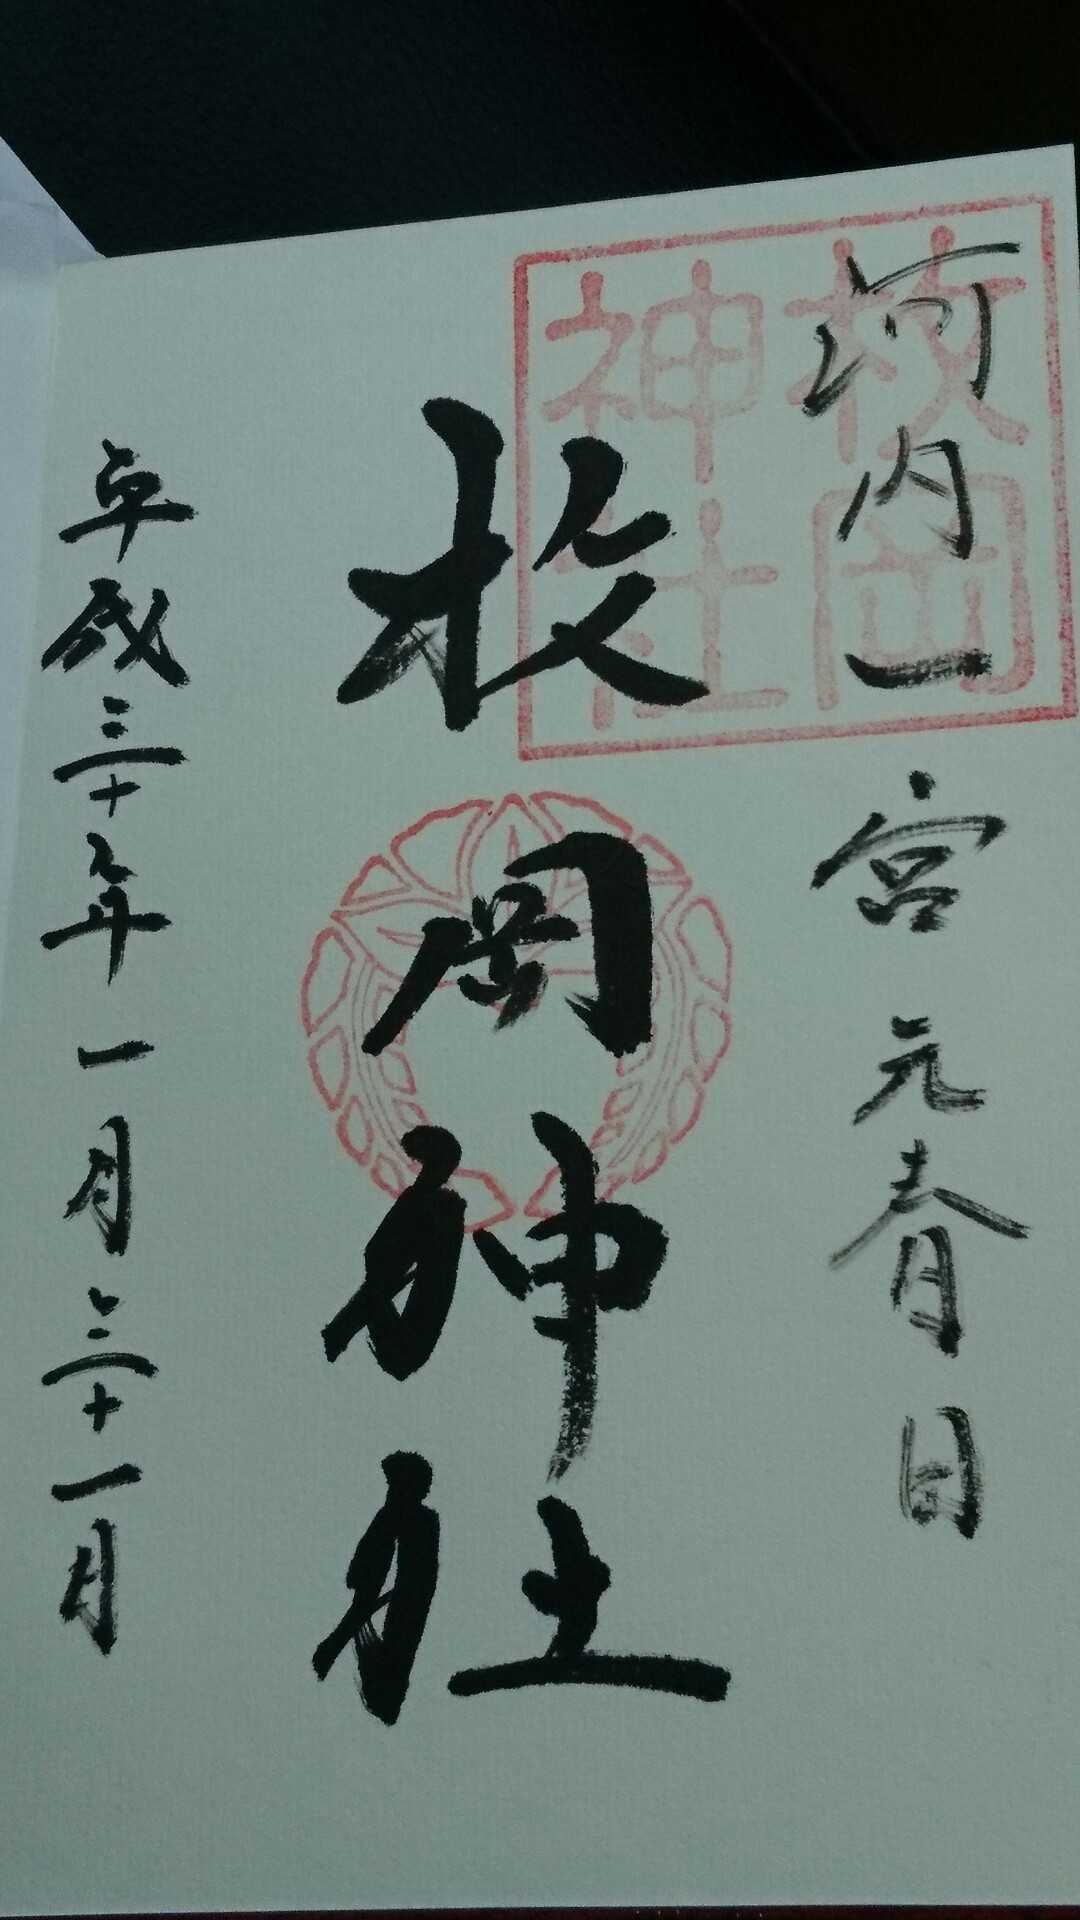 河内一宮元春日
枚岡
神社
枚岡神社
平成三十年一月三十一日